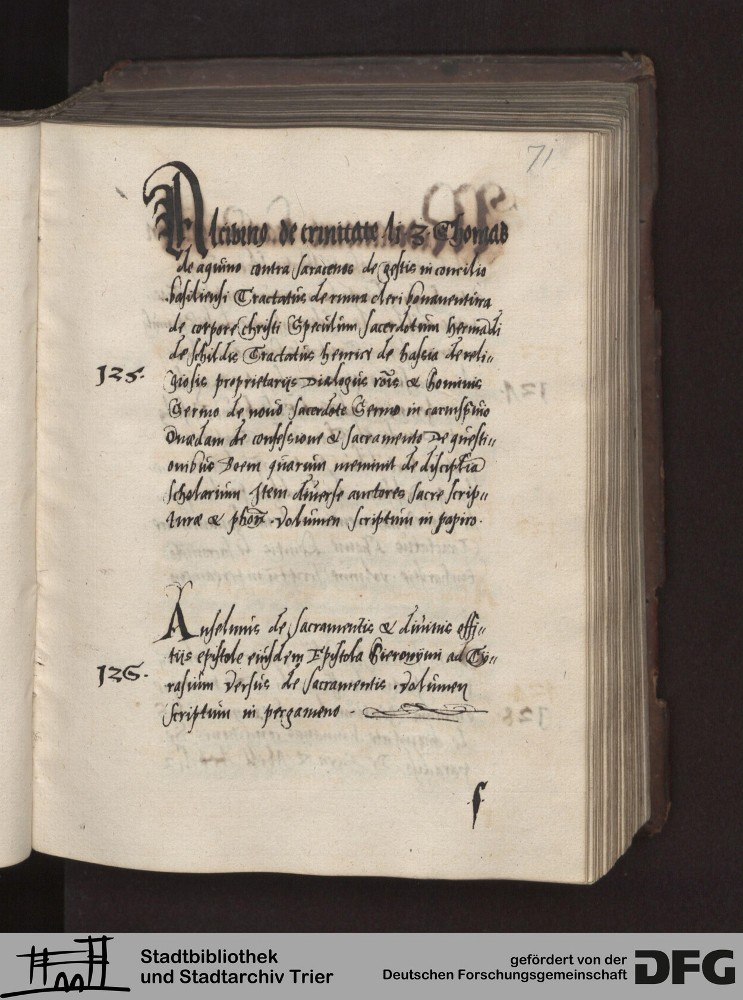 71
Alcibinus de trinitate li 3 Thomas
de aquino contra saracenos de gestis in concilio
basiliensi Tractatus de ruina cleri bonaventura
de corpore christi Speculum sacerdotum Hermani
de schildis Tractatus henrici de hassia de reli-
125. giosis proprietariis Dialogus rois & hominis
Sermo de novo sacerdote Sermo in
Quedam de confessione & sacramento De questi-
onibus Idem quarum meminit de disciplia
scholarium Item diverse auctores sacre scrip-
ture & phor. Volumen scriptum in papiro.
Anselmus de sacramentis & divinis offi-
tiis epistole eiusdem Epistola hieronymi ad Cy-
126. rasium Versus de sacramentis. Volumen
scriptum in pergameno.
f
Stadtbibliothek
und Stadtarchiv Trier
gefördert von der
Deutschen Forschungsgemeinschaft
DFG